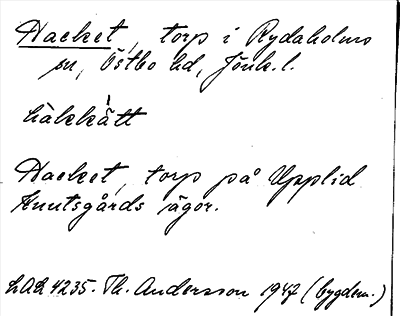 Hacket, torp i Rydaholms
sn, Östbo hd, Jönk. l.
hàkkätt
Hacket, torp på Upplid
Knutsgårds ägor.
LAL 4235. Th. Andersson 1947 (bygdem.)